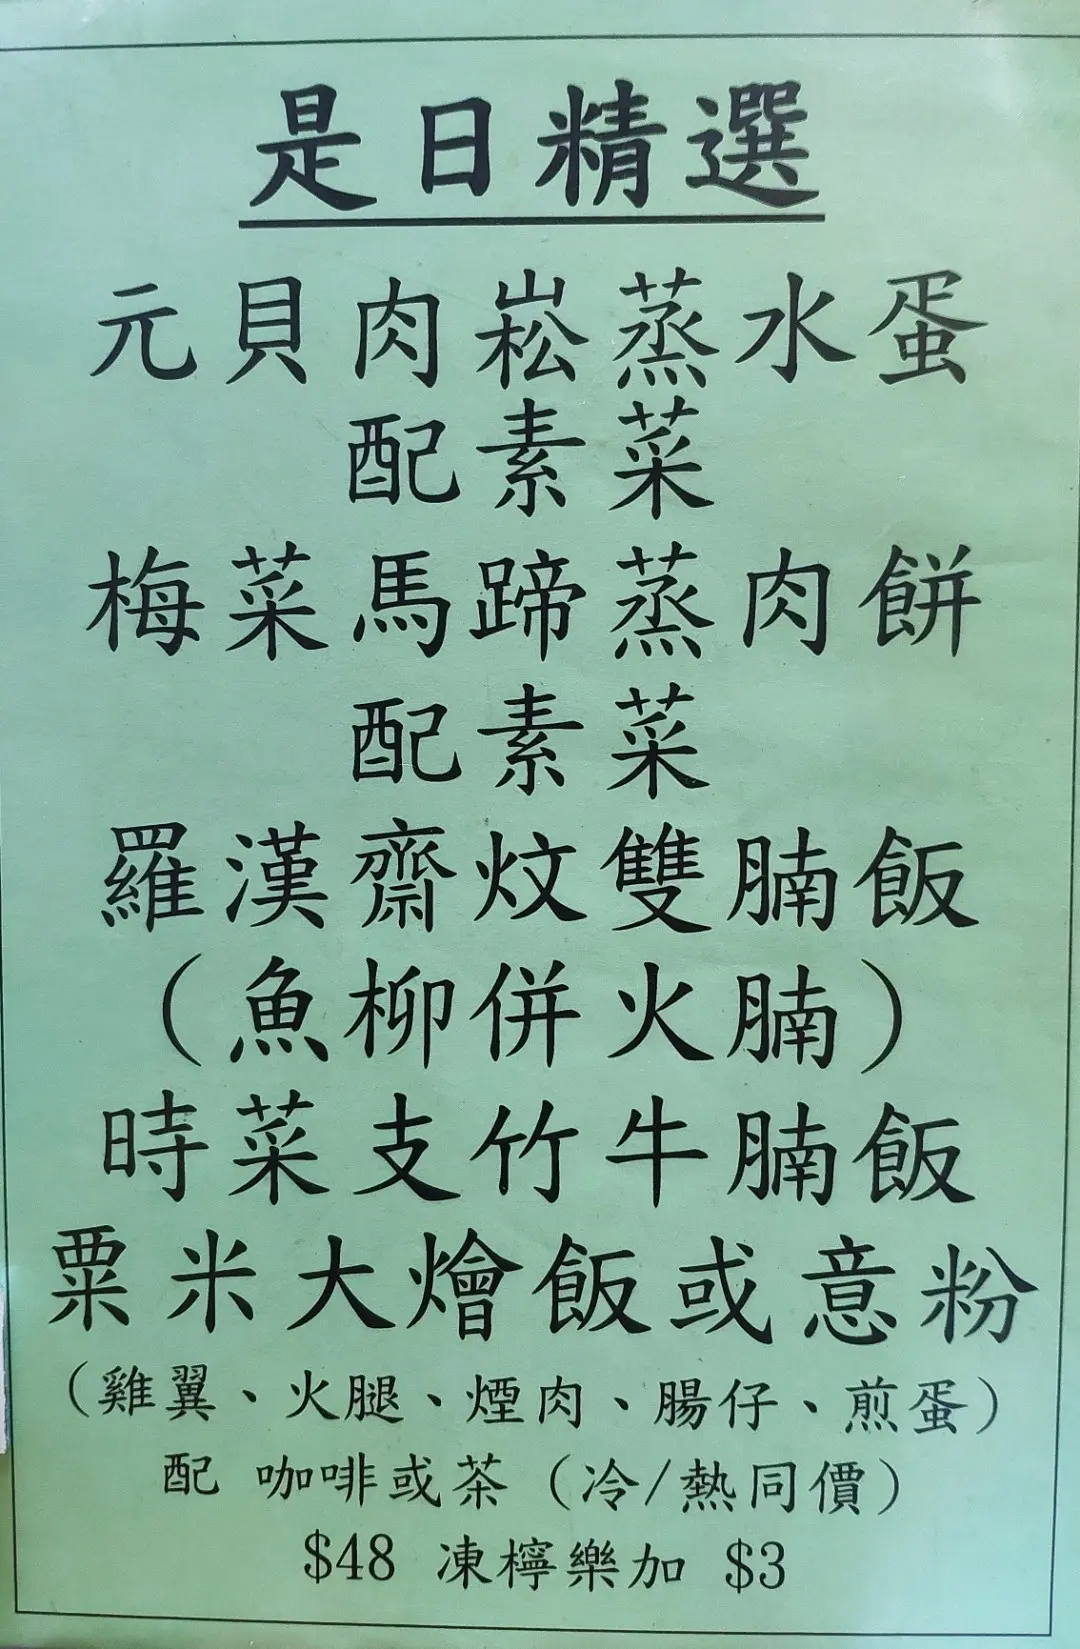 是日精選
元貝肉崧蒸水蛋
配素菜
梅菜馬蹄蒸肉餅
配素菜
羅漢齋炆雙腩飯
（魚柳併火腩）
時菜支竹牛腩飯
粟米大燴飯或意粉
（雞翼、火腿、煙肉、腸仔、煎蛋）
配 咖啡或茶（冷/熱同價）
$48 凍檸樂加 $3